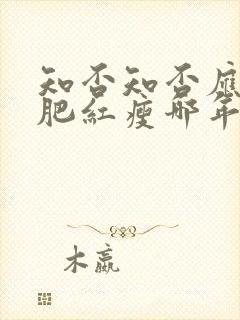 知否知否應
肥紅瘦那年
木嬴